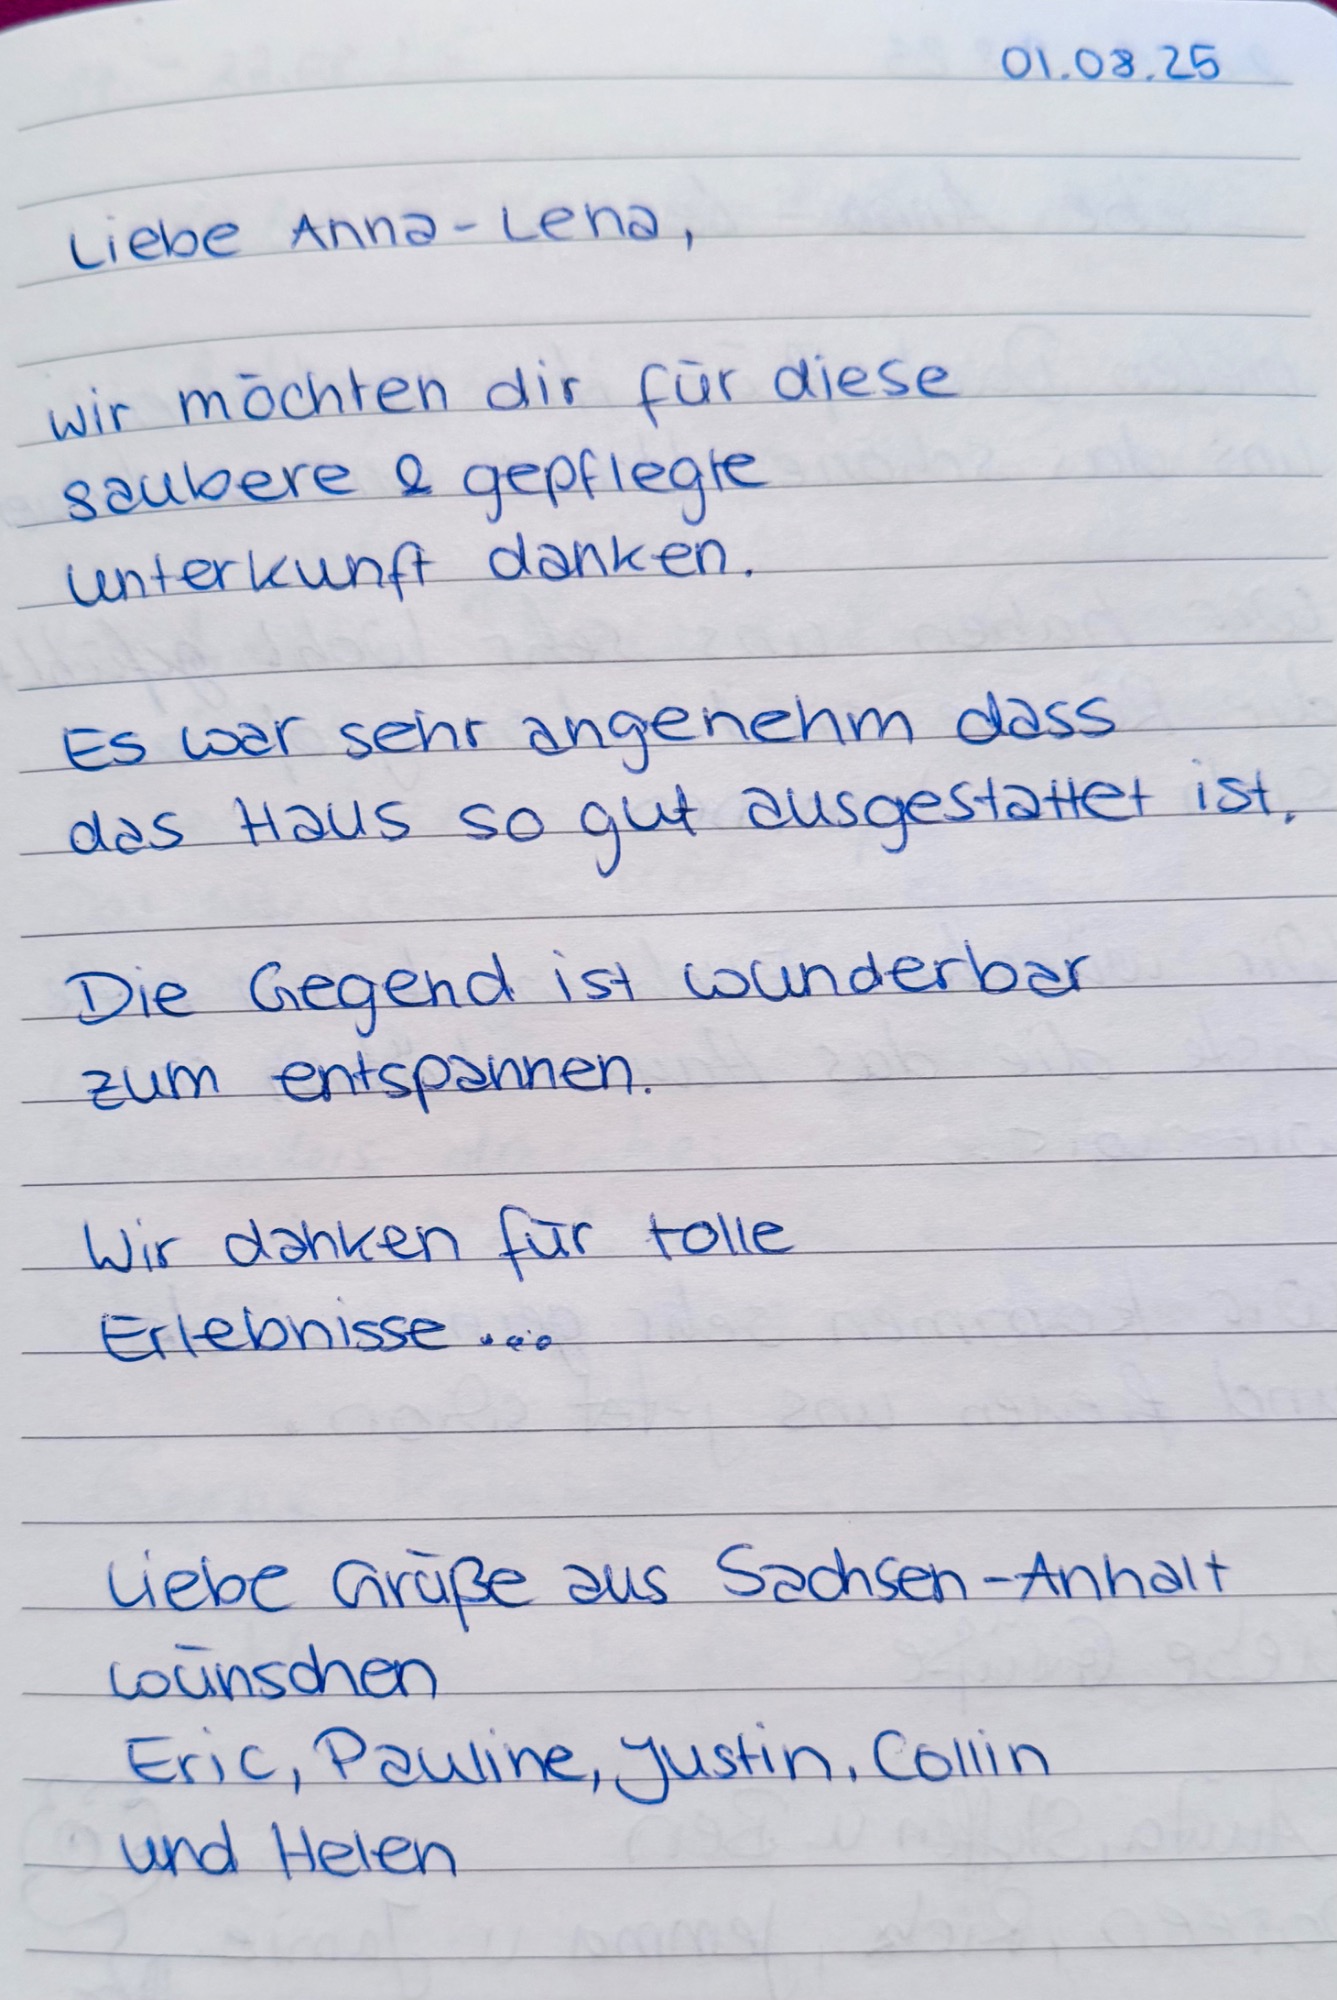 01.08.25
Liebe Anna-Lena,
wir möchten dir für diese
saubere & gepflegte
Unterkunft danken.
Es war sehr angenehm dass
das Haus so gut ausgestattet ist.
Die Gegend ist wunderbar
zum entspannen.
Wir danken für tolle
Erlebnisse...
Liebe Grüße aus Sachsen-Anhalt
wünschen
Eric, Pauline, Justin, Collin
und Helen